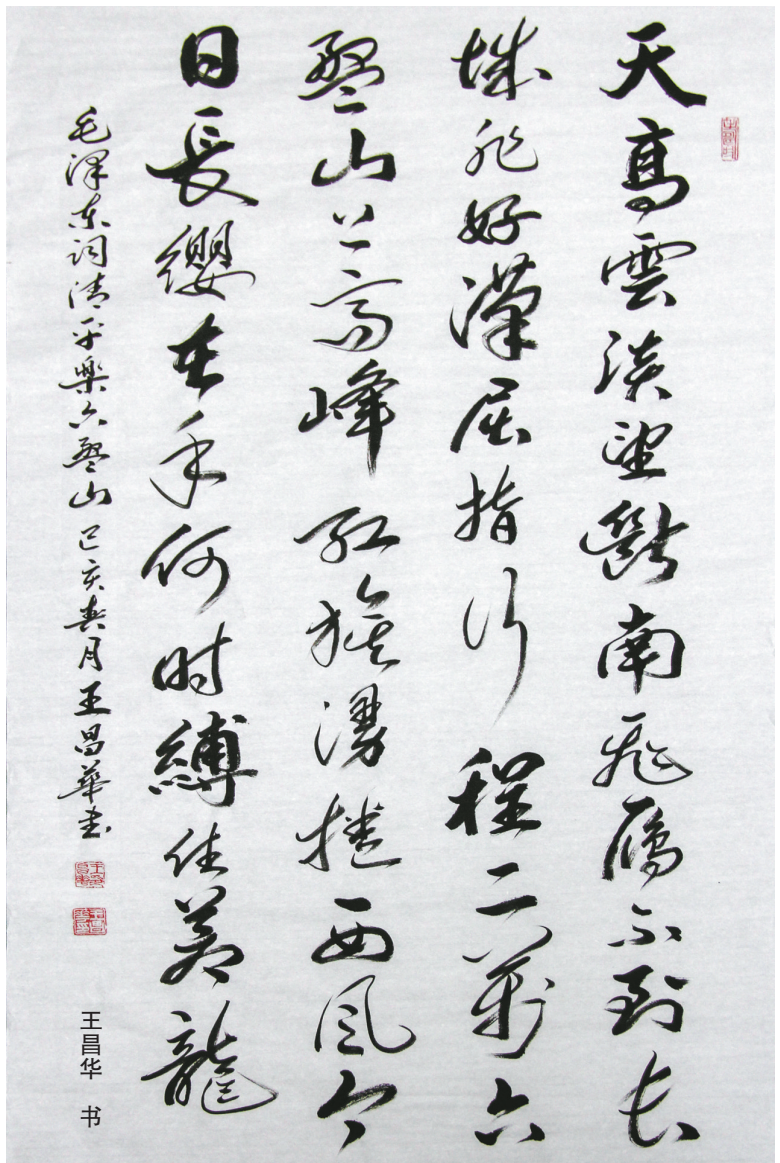 天高雲淡望斷南飛雁不到长
城非好漢屈指行程二萬六
盤山上高峰红旗漫捲西风今
日長纓在手何时縛住蒼龍
毛澤东词清平樂六盤山己亥春月王昌華書
王昌华 书